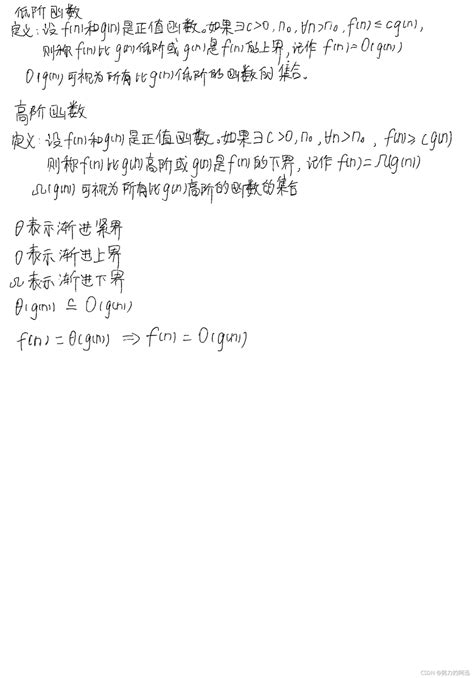 低阶函数
定义:设f(n)和g(n)是正值函数。如果∃c>0,n₀,∀n>n₀,f(n)≤cg(n),
则称f(n)比g(n)低阶或g(n)是f(n)的上界,记作f(n)=O(g(n))
O(g(n))可视为所有比g(n)低阶的函数的集合。
高阶函数
定义:设f(n)和g(n)是正值函数。如果∃c>0,n₀,∀n>n₀,f(n)≥cg(n)
则称f(n)比g(n)高阶或g(n)是f(n)的下界,记作f(n)=Ω(g(n))
Ω(g(n))可视为所有比g(n)高阶的函数的集合
θ表示渐进紧界
O表示渐进上界
Ω表示渐进下界
θ(g(n))⊆O(g(n))
f(n)=θ(g(n))⇒f(n)=O(g(n))
CSDN @努力的阿迅